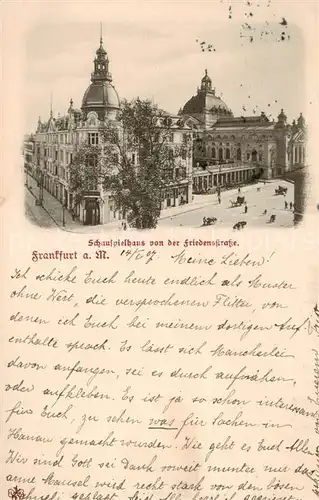 Schauspielhaus von der Friedensstraße.
Frankfurt a. M. 14/5 07. Meine Lieben!
Ich schicke Euch heute endlich als Muster
ohne Wert, die versprochenen Flitter, von
denen ich Euch bei meinem dortigen Auf-
enthalte sprach. Es lässt sich Mancherlei
davon anfangen, sei es durch aufnähen,
oder aufkleben. Es ist ja so schon interessant
für Euch, zu sehen was für Sachen in
Hanau gemacht wurden. Wie geht es Euch Allen
Wir sind Gott sei Dank soweit munter nur das
arme Mausel wird recht stark von den bösen
geplagt. Seid Alle herzl.